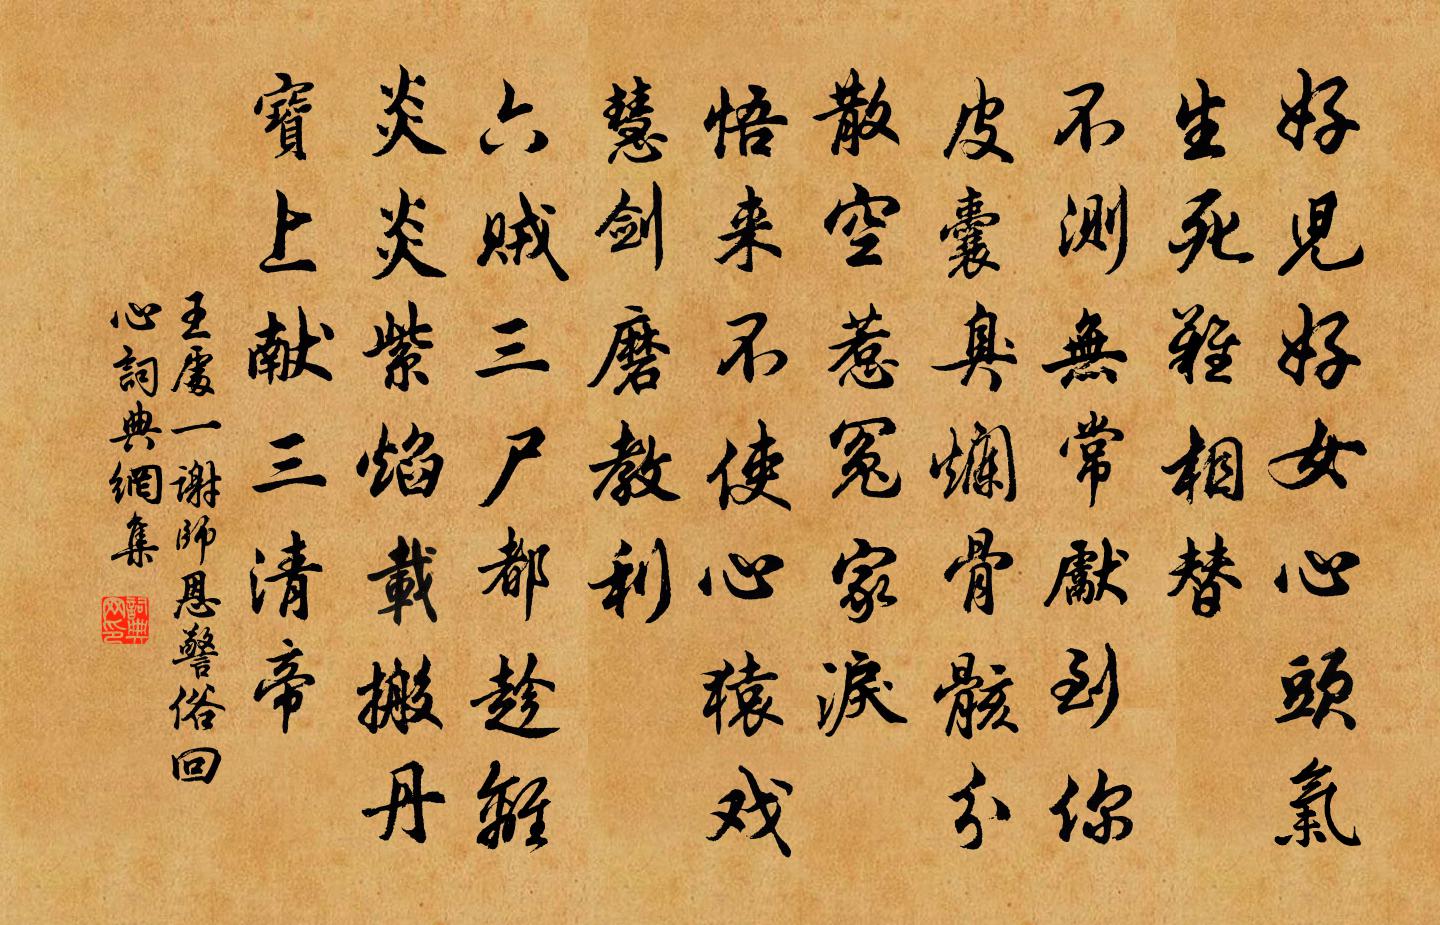 好児好女心頭氣
生死難相替
不測無常獻到你
皮囊臭爛骨骸分
散空惹冤家淚
悟来不使心猿戏
慧剑磨教利
六贼三尸都趁離
炎炎紫焰載搬丹
寶上献三清帝
王處一謝師恩警俗回
心詞典網集
詞典
网印